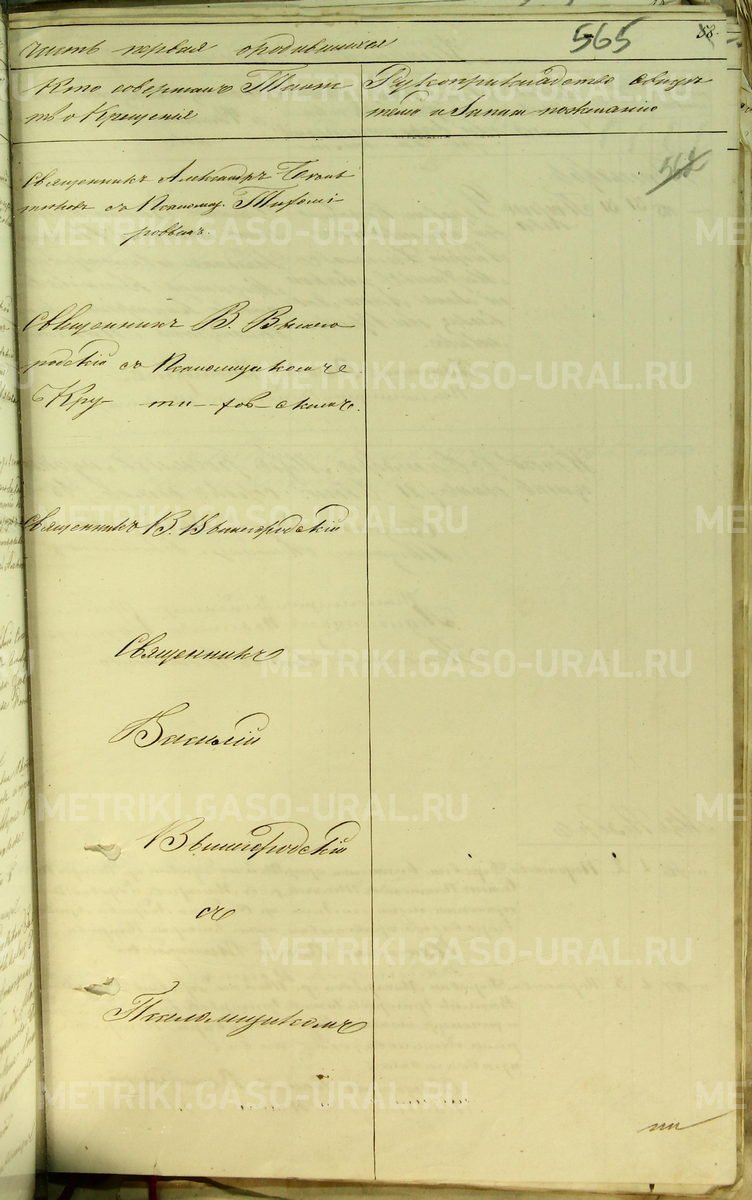 часть первая о родившихся 565 58
Кто совершалъ Таинство Крещенія
Рукоприкладство свидетелей о записи по желанію
562
Священникъ Александръ
съ Псаломщ. Тихоми-
ровымъ.
Священникъ В. Вышего-
родскій съ Псаломщикомъ
Кру-ти-хов-скимъ.
Священникъ В. Вышегородскій
Священникъ
Василій
Вышегородскій
съ
Псаломщикомъ
METRIKI.GASO-URAL.RU